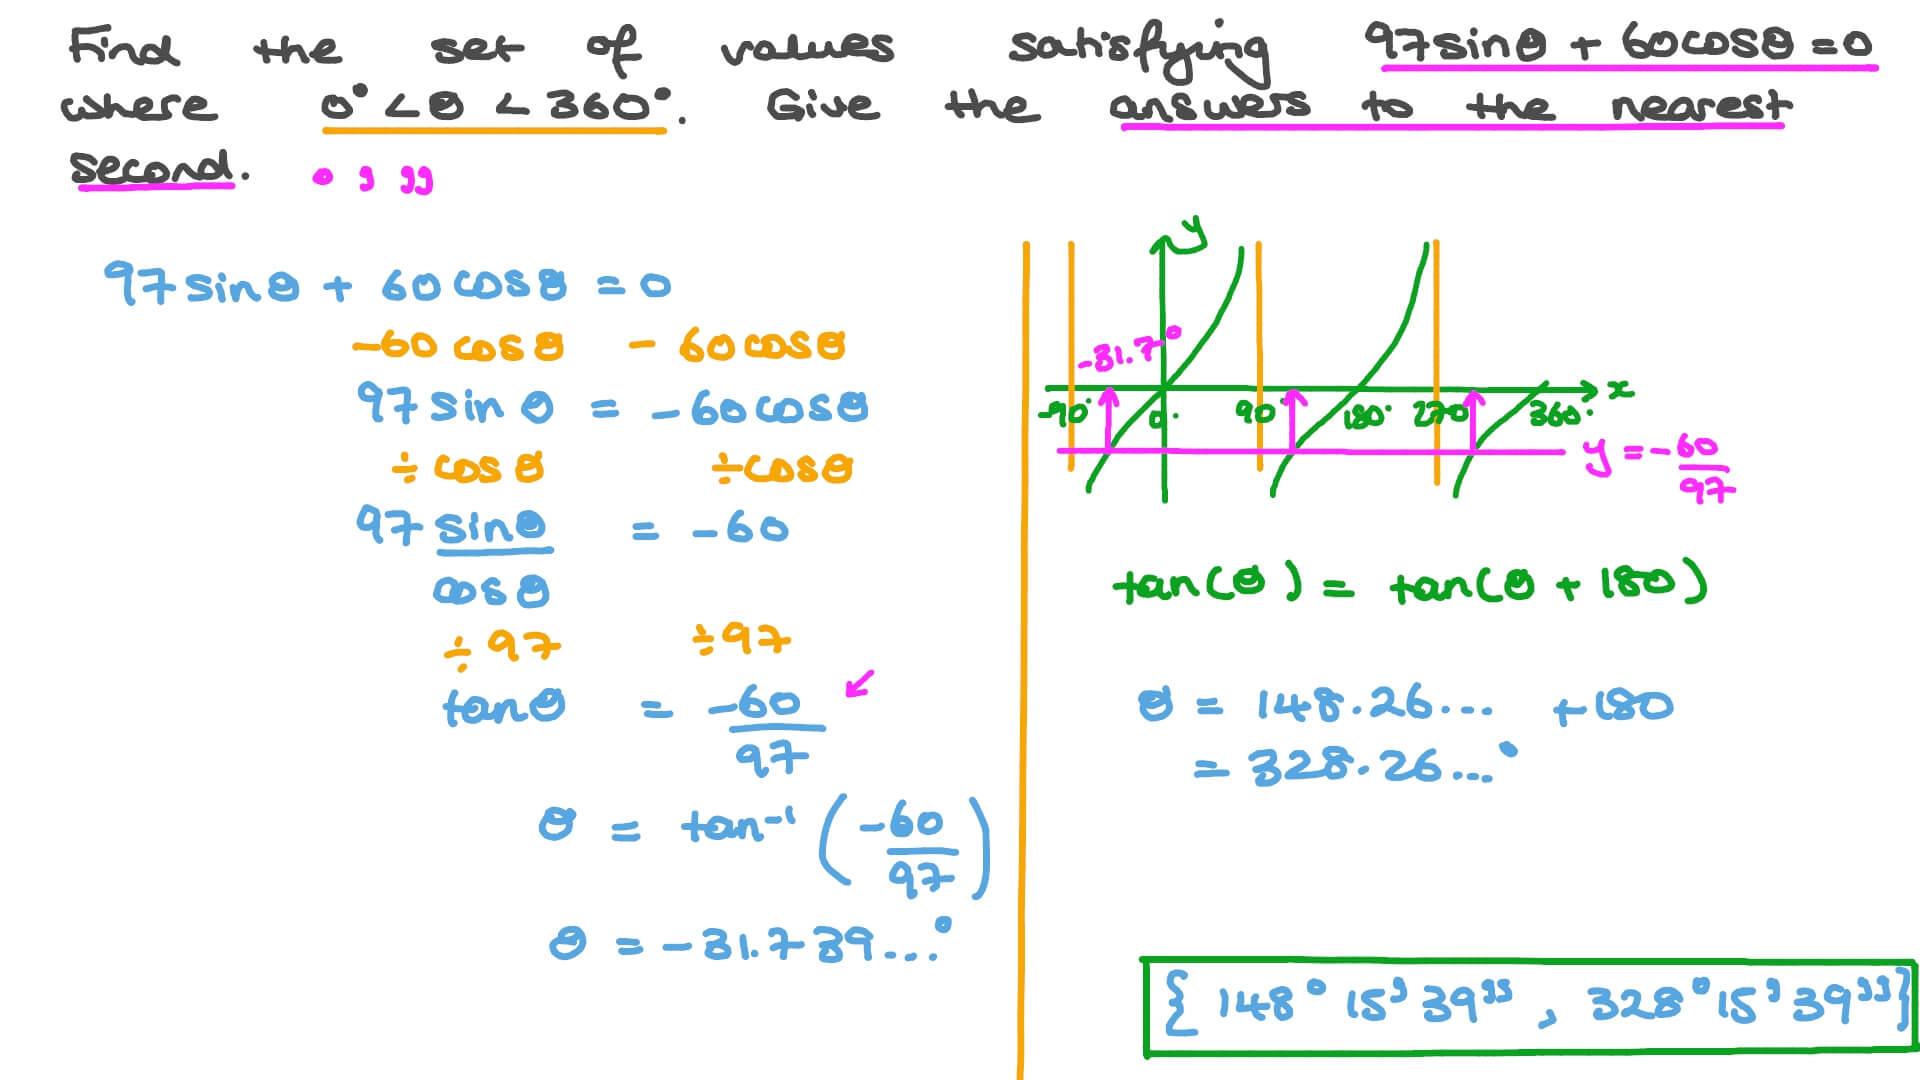 Find the set of values satisfying 97sinθ + 60cosθ = 0
where 0° < θ < 360°. Give the answers to the nearest
second. ° ' ''
97 sinθ + 60 cosθ = 0
-60 cosθ - 60cosθ
97 sin θ = -60cosθ
÷ cosθ ÷cosθ
97 sinθ = -60
cosθ
÷ 97 ÷97
tanθ = -60
97
θ = tan⁻¹ (-60
97)
θ = -31.739...°
y
-31.7°
x
-90° 0° 90° 180° 270° 360°
y = -60
97
tan(θ) = tan(θ + 180)
θ = 148.26... +180
= 328.26...°
{ 148° 15' 39'' , 328° 15' 39'' }